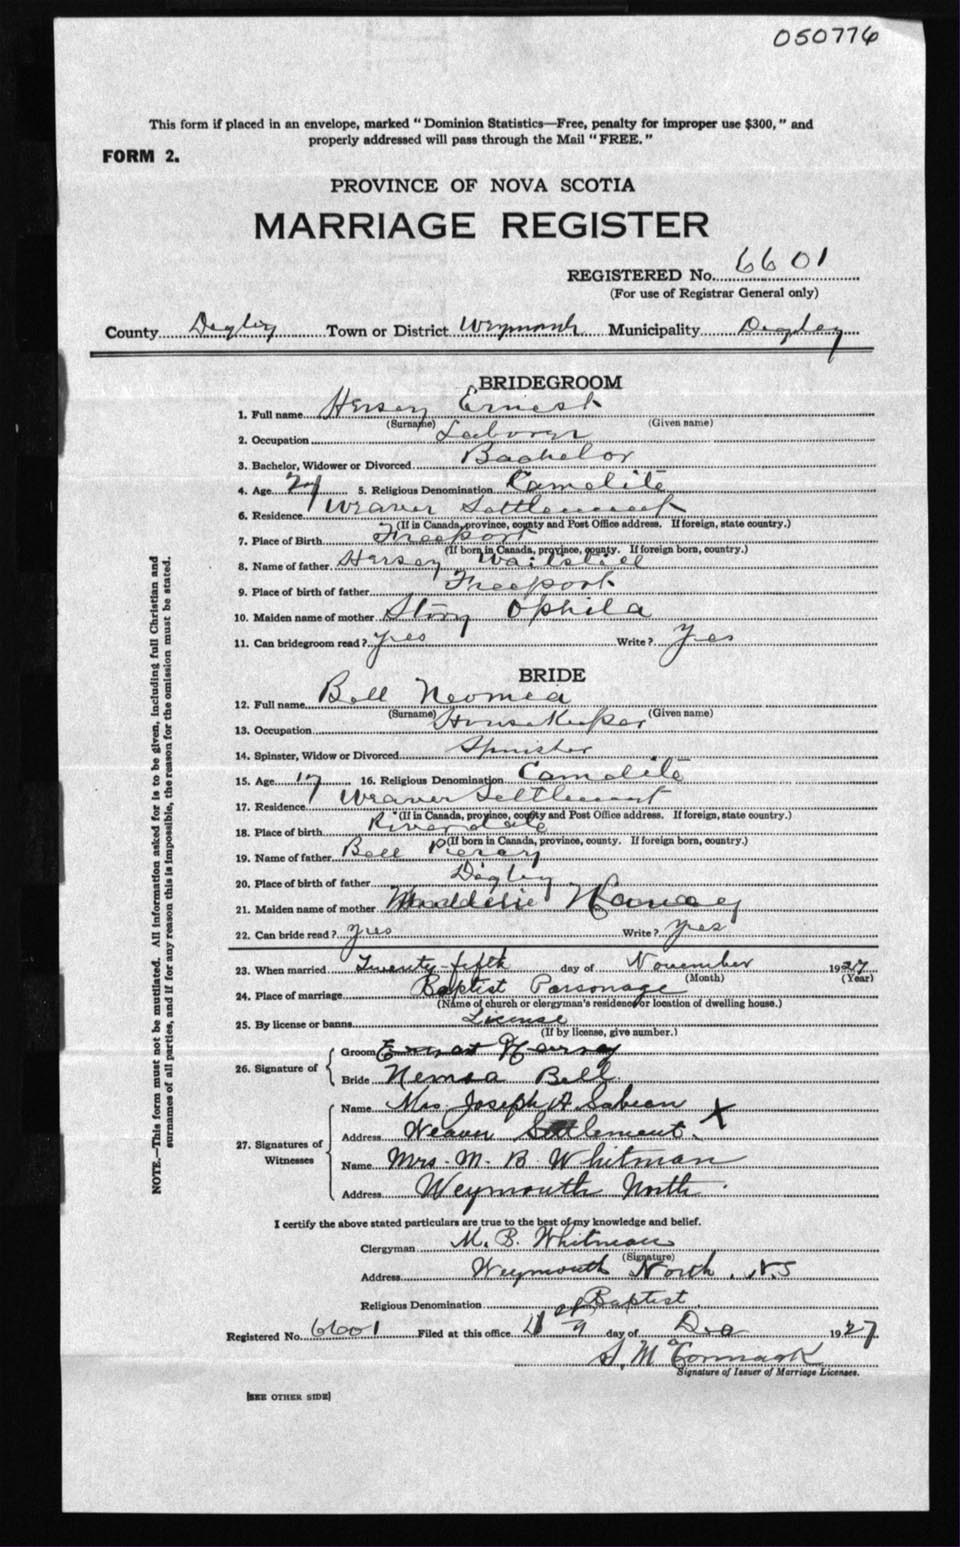 050776
This form if placed in an envelope, marked “Dominion Statistics—Free, penalty for improper use $300,” and
properly addressed will pass through the Mail “FREE.”
FORM 2.
PROVINCE OF NOVA SCOTIA
MARRIAGE REGISTER
REGISTERED No. 6601
(For use of Registrar General only)
County Digby Town or District Weymouth Municipality Digby
BRIDEGROOM
1. Full name Hersey Ernest
(Surname) (Given name)
2. Occupation Laborer
3. Bachelor, Widower or Divorced Bachelor
4. Age 5. Religious Denomination Camolite
6. Residence Weaver Settlement
(If in Canada, province, county and Post Office address. If foreign, state country.)
7. Place of Birth Freeport
(If born in Canada, province, county. If foreign born, country.)
8. Name of father Hersey
9. Place of birth of father Freeport
10. Maiden name of mother Story Ophila
11. Can bridegroom read? Yes Write? Yes
BRIDE
12. Full name Bell Neomea
(Surname) (Given name)
13. Occupation House Keeper
14. Spinster, Widow or Divorced Spinster
15. Age 17 16. Religious Denomination Camolite
17. Residence Weaver Settlement
(If in Canada, province, county and Post Office address. If foreign, state country.)
18. Place of birth Riverdale
(If born in Canada, province, county. If foreign born, country.)
19. Name of father Bell
20. Place of birth of father Digby
21. Maiden name of mother
22. Can bride read? Yes Write? Yes
23. When married Twenty-fifth day of November 1927
(Month) (Year)
24. Place of marriage Baptist Parsonage
(Name of church or clergyman's residence or location of dwelling house.)
25. By license or banns License
(If by license, give number.)
26. Signature of
Groom Ernest Hersey
Bride Nemea Bell
27. Signatures of Witnesses
Name Mrs Joseph A Sabean X
Address Weaver Settlement.
Name Mrs. M. B. Whitman
Address Weymouth North.
I certify the above stated particulars are true to the best of my knowledge and belief.
Clergyman M. B. Whitman
(Signature)
Address Weymouth North, N.S
Religious Denomination Baptist
Registered No. 6601 Filed at this office 9 day of Dec 1927
S. McCormack
Signature of Issuer of Marriage Licenses.
[SEE OTHER SIDE]
NOTE.—This form must not be mutilated. All information asked for is to be given, including full Christian and
surnames of all parties, and if for any reason this is impossible, the reason for the omission must be stated.